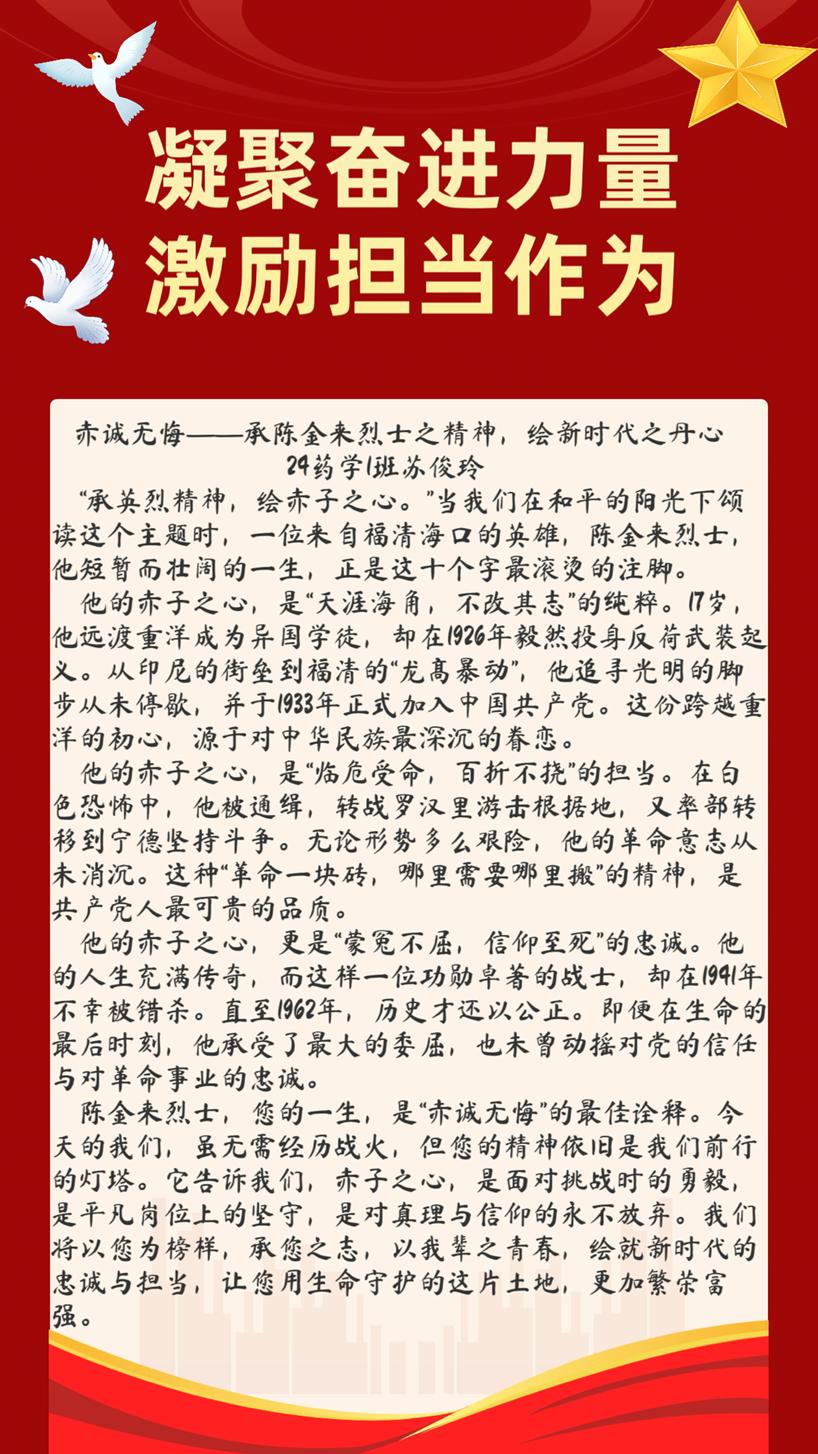 凝聚奋进力量
激励担当作为
赤诚无悔——承陈金来烈士之精神，绘新时代之丹心
24药学1班苏俊玲
“承英烈精神，绘赤子之心。”当我们在和平的阳光下颂
读这个主题时，一位来自福清海口的英雄，陈金来烈士，
他短暂而壮阔的一生，正是这十个字最滚烫的注脚。
他的赤子之心，是“天涯海角，不改其志”的纯粹。17岁，
他远渡重洋成为异国学徒，却在1926年毅然投身反荷武装起
义。从印尼的街垒到福清的“龙高暴动”，他追寻光明的脚
步从未停歇，并于1933年正式加入中国共产党。这份跨越重
洋的初心，源于对中华民族最深沉的眷恋。
他的赤子之心，是“临危受命，百折不挠”的担当。在白
色恐怖中，他被通缉，转战罗汉里游击根据地，又率部转
移到宁德坚持斗争。无论形势多么艰险，他的革命意志从
未消沉。这种“革命一块砖，哪里需要哪里搬”的精神，是
共产党人最可贵的品质。
他的赤子之心，更是“蒙冤不屈，信仰至死”的忠诚。他
的人生充满传奇，而这样一位功勋卓著的战士，却在1941年
不幸被错杀。直至1962年，历史才还以公正。即便在生命的
最后时刻，他承受了最大的委屈，也未曾动摇对党的信任
与对革命事业的忠诚。
陈金来烈士，您的一生，是“赤诚无悔”的最佳诠释。今
天的我们，虽无需经历战火，但您的精神依旧是我们前行
的灯塔。它告诉我们，赤子之心，是面对挑战时的勇毅，
是平凡岗位上的坚守，是对真理与信仰的永不放弃。我们
将以您为榜样，承您之志，以我辈之青春，绘就新时代的
忠诚与担当，让您用生命守护的这片土地，更加繁荣富
强。